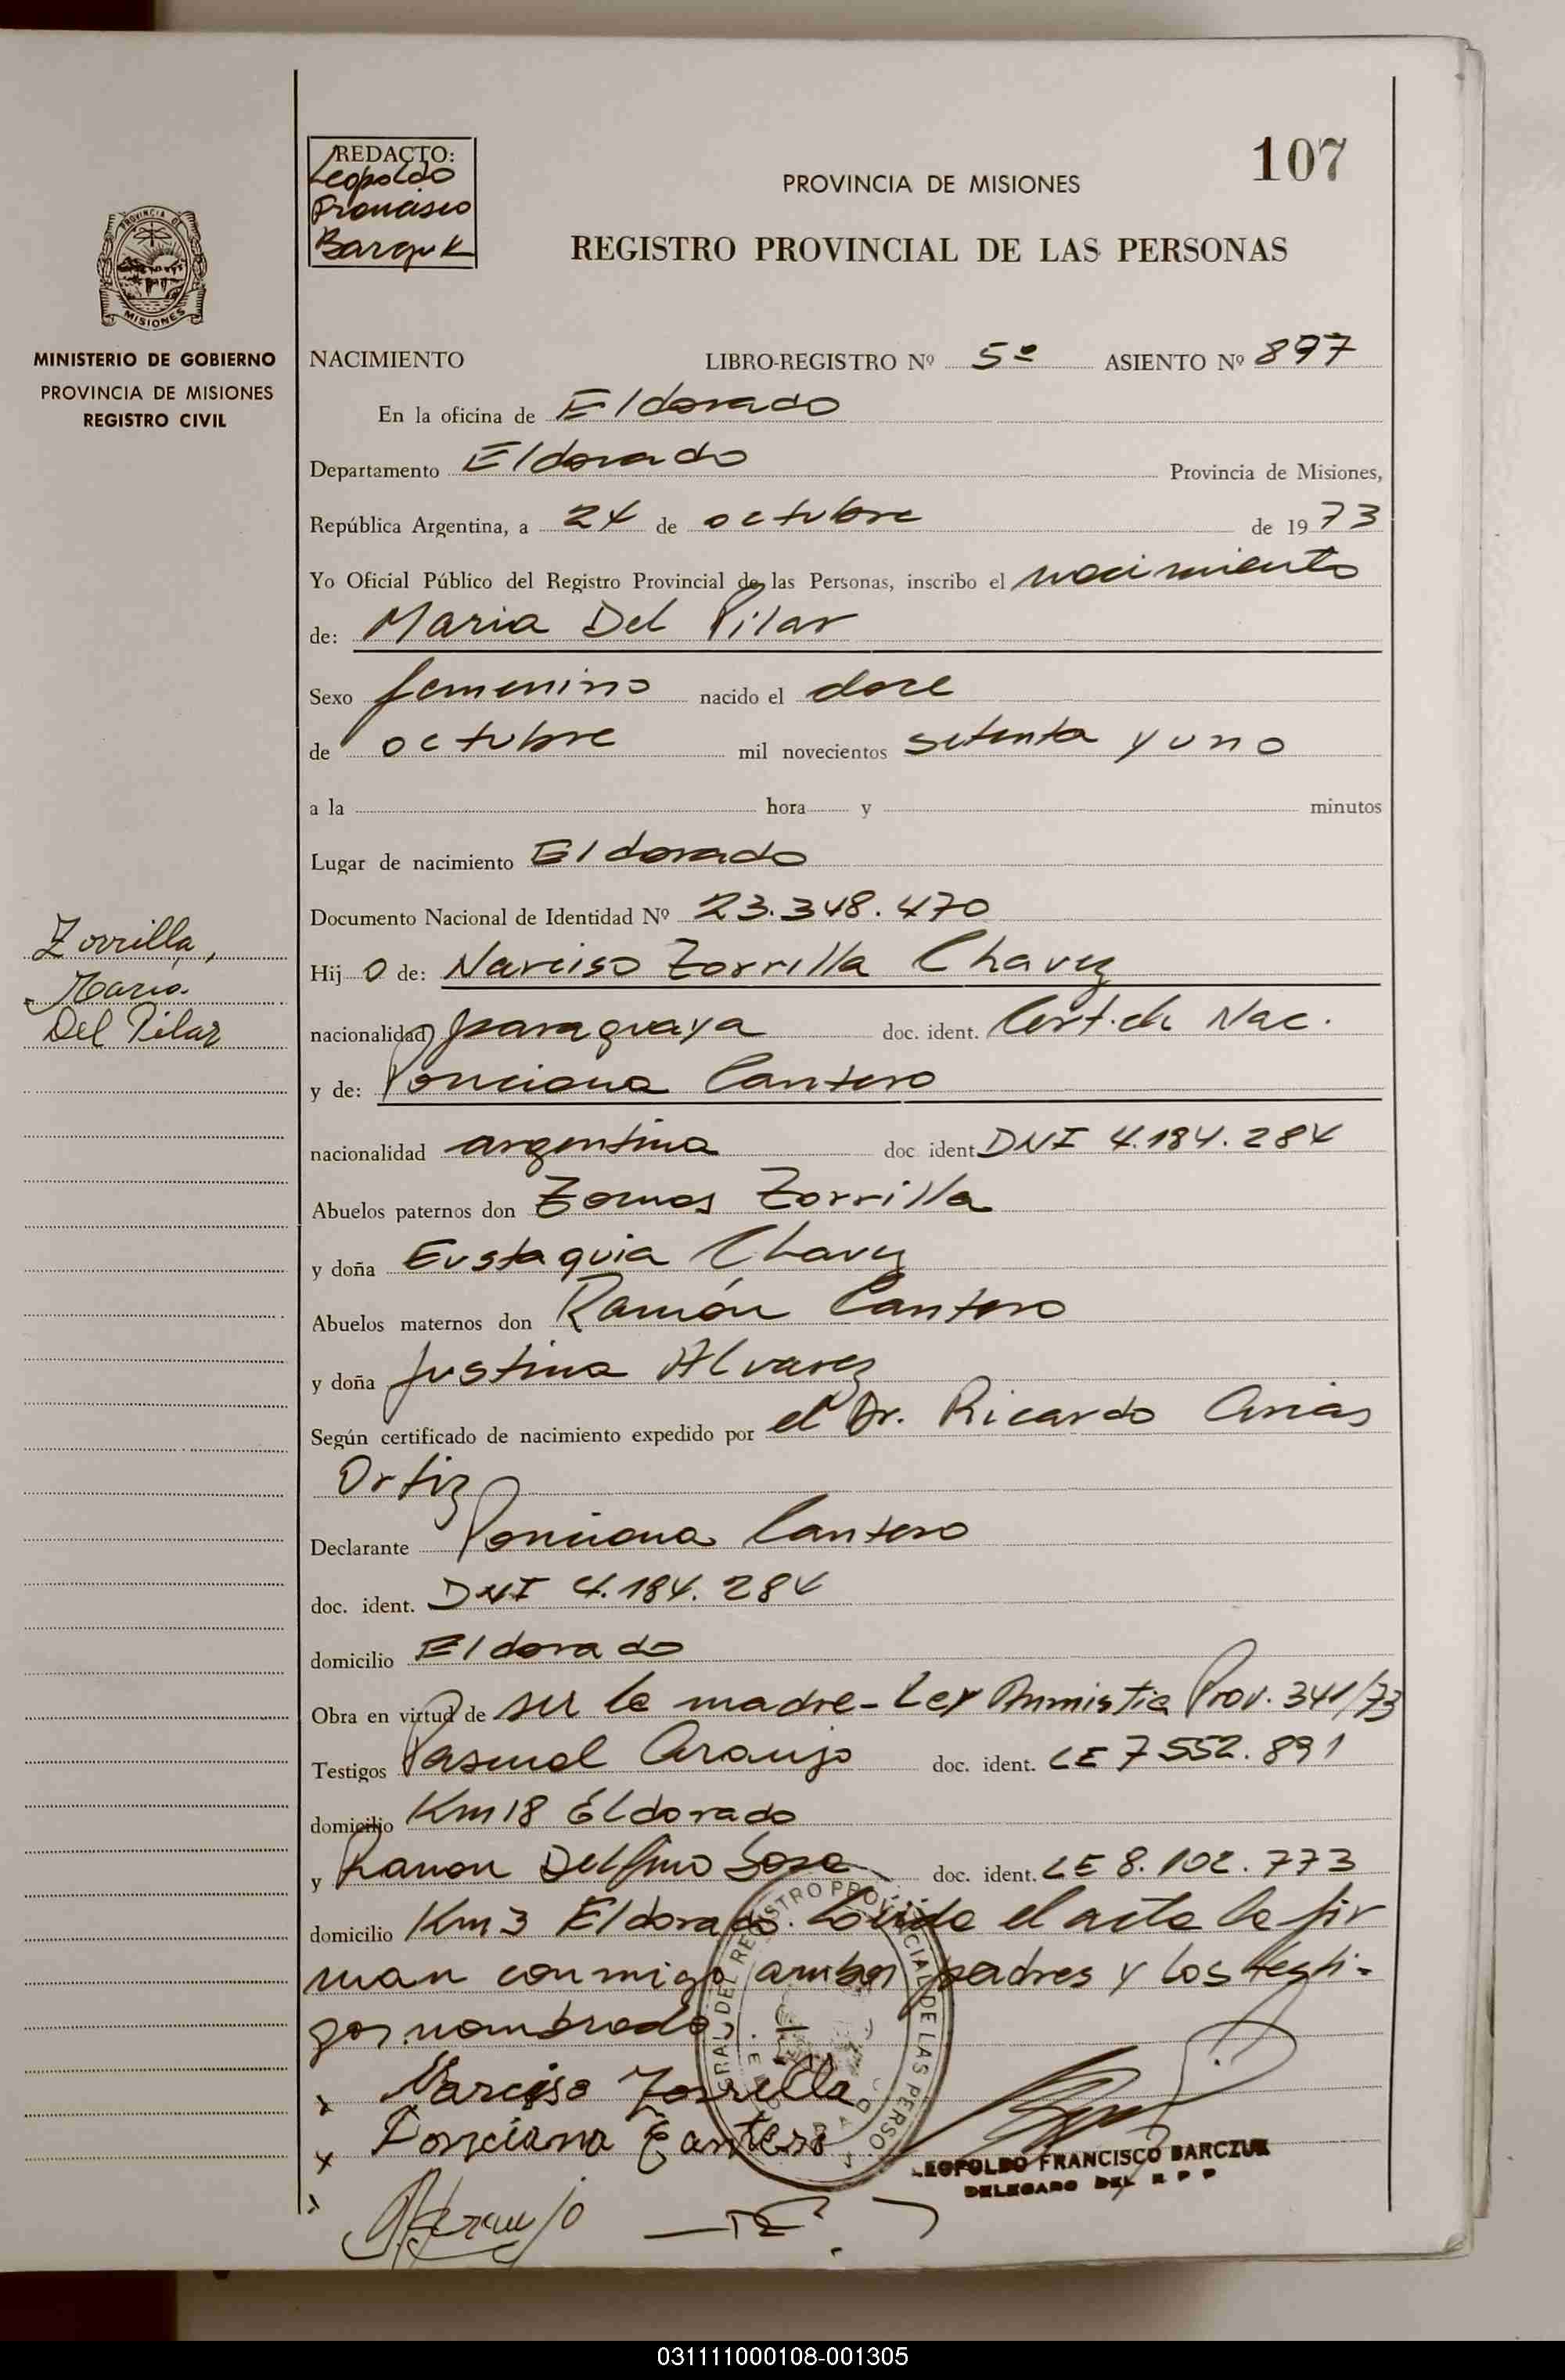 107
REDACTO:
Leopoldo
Francisco
Barczuk
PROVINCIA DE MISIONES
REGISTRO PROVINCIAL DE LAS PERSONAS
PROVINCIA DE
MISIONES
MINISTERIO DE GOBIERNO
PROVINCIA DE MISIONES
REGISTRO CIVIL
NACIMIENTO LIBRO-REGISTRO Nº 5º ASIENTO Nº 897
En la oficina de Eldorado
Departamento Eldorado Provincia de Misiones,
República Argentina, a 24 de octubre de 1973
Yo Oficial Público del Registro Provincial de las Personas, inscribo el nacimiento
de: Maria Del Pilar
Sexo femenino nacido el doce
de octubre mil novecientos setenta y uno
a la hora y minutos
Lugar de nacimiento Eldorado
Documento Nacional de Identidad Nº 23.348.470
Zorrilla,
Maria
Del Pilar
Hijo de: Narciso Zorrilla Chavez
nacionalidad paraguaya doc. ident. Cert. de Nac.
y de: Ponciana Cantero
nacionalidad argentina doc ident. DNI 4.184.284
Abuelos paternos don Tomas Zorrilla
y doña Eustaquia Chavez
Abuelos maternos don Ramón Cantero
y doña Justina Alvarez
Según certificado de nacimiento expedido por el Dr. Ricardo Arias
Ortiz
Declarante Ponciana Cantero
doc. ident. DNI 4.184.284
domicilio Eldorado
Obra en virtud de ser la madre - Ley Amnistia Prov. 341/73
Testigos Pascual Araujo doc. ident. LE 7552.891
domicilio Km 18 Eldorado
y Ramon Delfino Sosa doc. ident. LE 8.102.773
domicilio Km 3 Eldorado. Leida el acta la fir
man conmigo ambos padres y los testi-
gos nombrados.
x Narciso Zorrilla
x Ponciana Cantero
x Araujo
LEOPOLDO FRANCISCO BARCZUK
DELEGADO DEL R P P
031111000108-001305